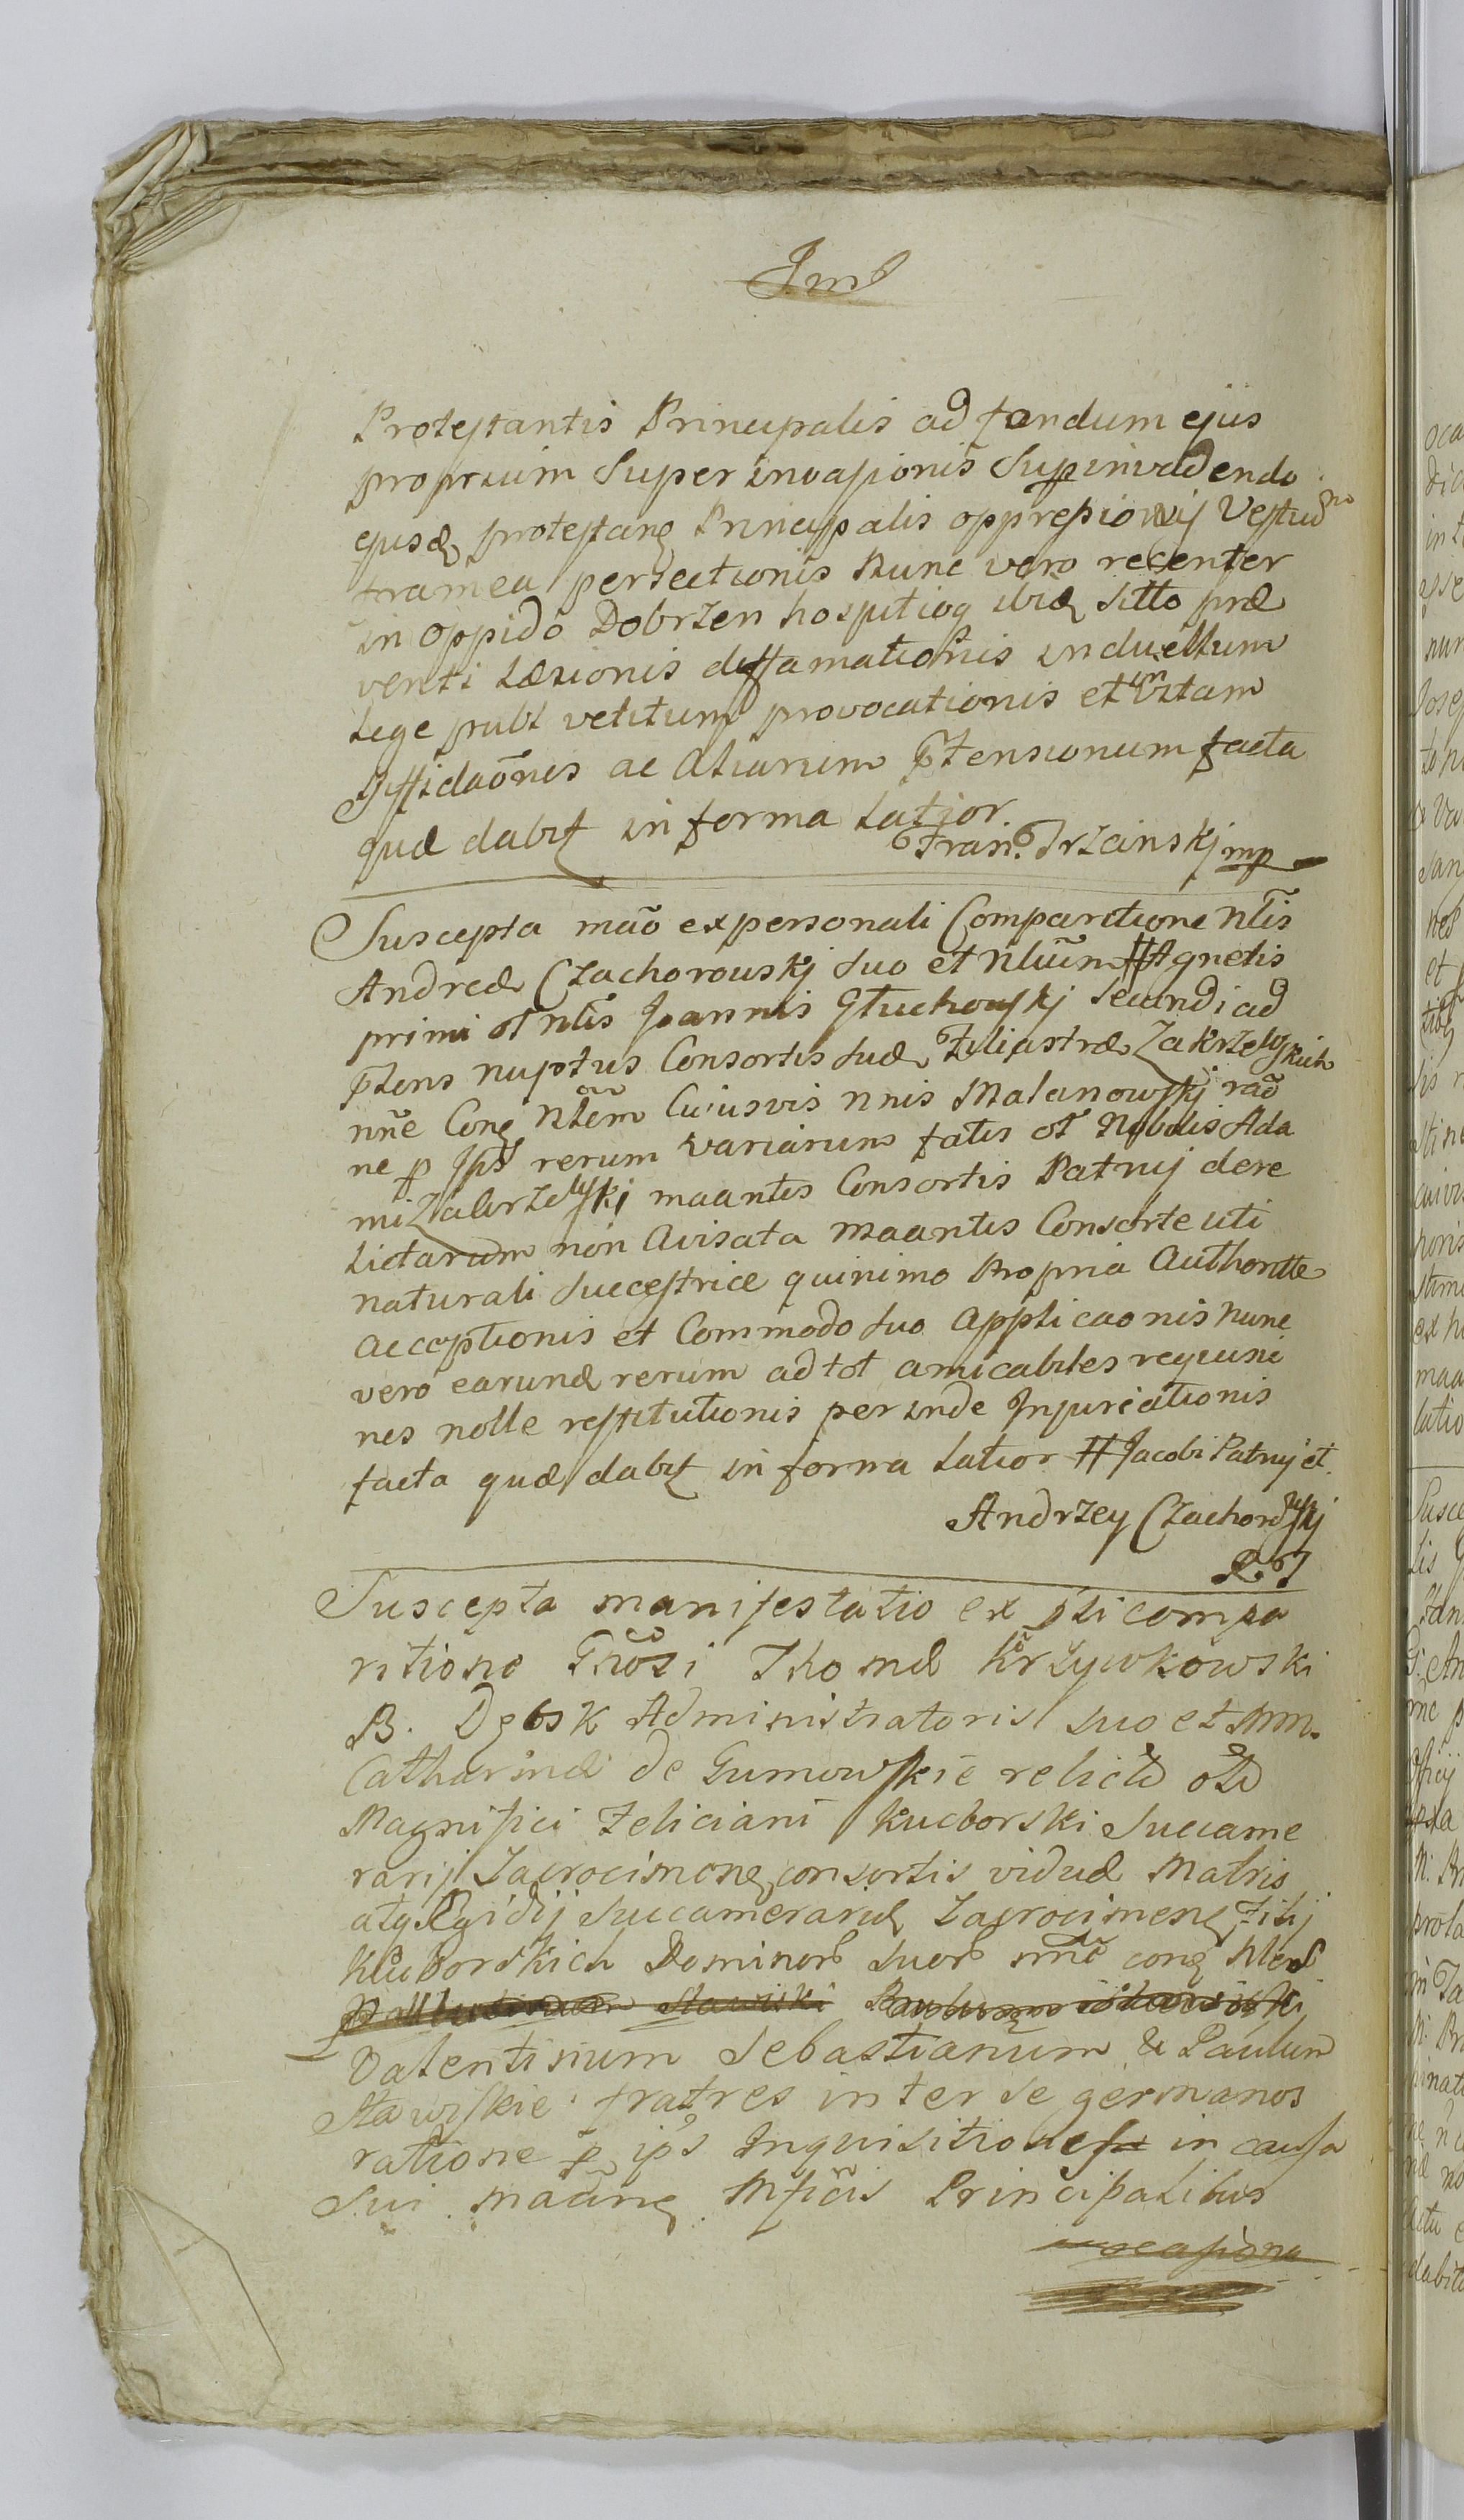 Protestantis Principalis ad fundum ejus
proprium Super invasionis Supinvadendo
ejusdę protestanę Principalis oppressionis Vestudīno
framea persectionis Nunc vero recenter
in oppido Dobrzen hospitioq ibidę Sitto præ
venti Læsionis diffamationis in duellum
Lege publ vetitum provocationis et in Vitam
Diffidaõnis ac Aliarum p̃tensionum facta
quæ dabit in forma Latior.
Fran: Trzcinski mp
Suscepta maõ ex personali Comparitione Nlis
Andreæ Czachorowskj suo et Nlium # Agnetis
primi ol Nlis Joannis Głuchowskj Secundi ad
p̃tens nuptus Consortis suæ Filiastræ Zakrzewskich
nñe Conę Nlem Cuiusvis nnis Malanowskj raõ
ne p Ips rerum variarum fatis ol Nobilis Ada
mi Zakrzewski maantis Consortis Patruj dere
Lictarum non Avisata maantis Consorte uti
naturali Successtrice quinimo propria Authortte
acceptionis et Commodo suo Applicaonis nunc
vero earundę rerum ad tot amicabiles requisi
nes nolle restitutionis perinde Injuriationis
facta quæ dabit in forma Latior # Jacobi Patruj et
Andrzey Czachorowskj
R. J
Suscepta manifestatio ex p̃li compa
ritione Gñosi Thomæ Krzywkowski
B. Dębsk Administratoris suo et Mm.
Catharinæ de Gumowskie relictæ olim
Magnifici Feliciani Kuczborski Succame
rarij Zacrocimenę consortis viduæ Matris
atq Ægidij Succameraridę Zacrocimenę Filij
Kuczborskich Dominorę suorę nñe conę Nles
Valentinum Sebastianum & Paulum
Stawiskie fratres inter se germanos
ratione p ip̃s Inquisitiones in causa
Sui maãnę Mficis Principalibus